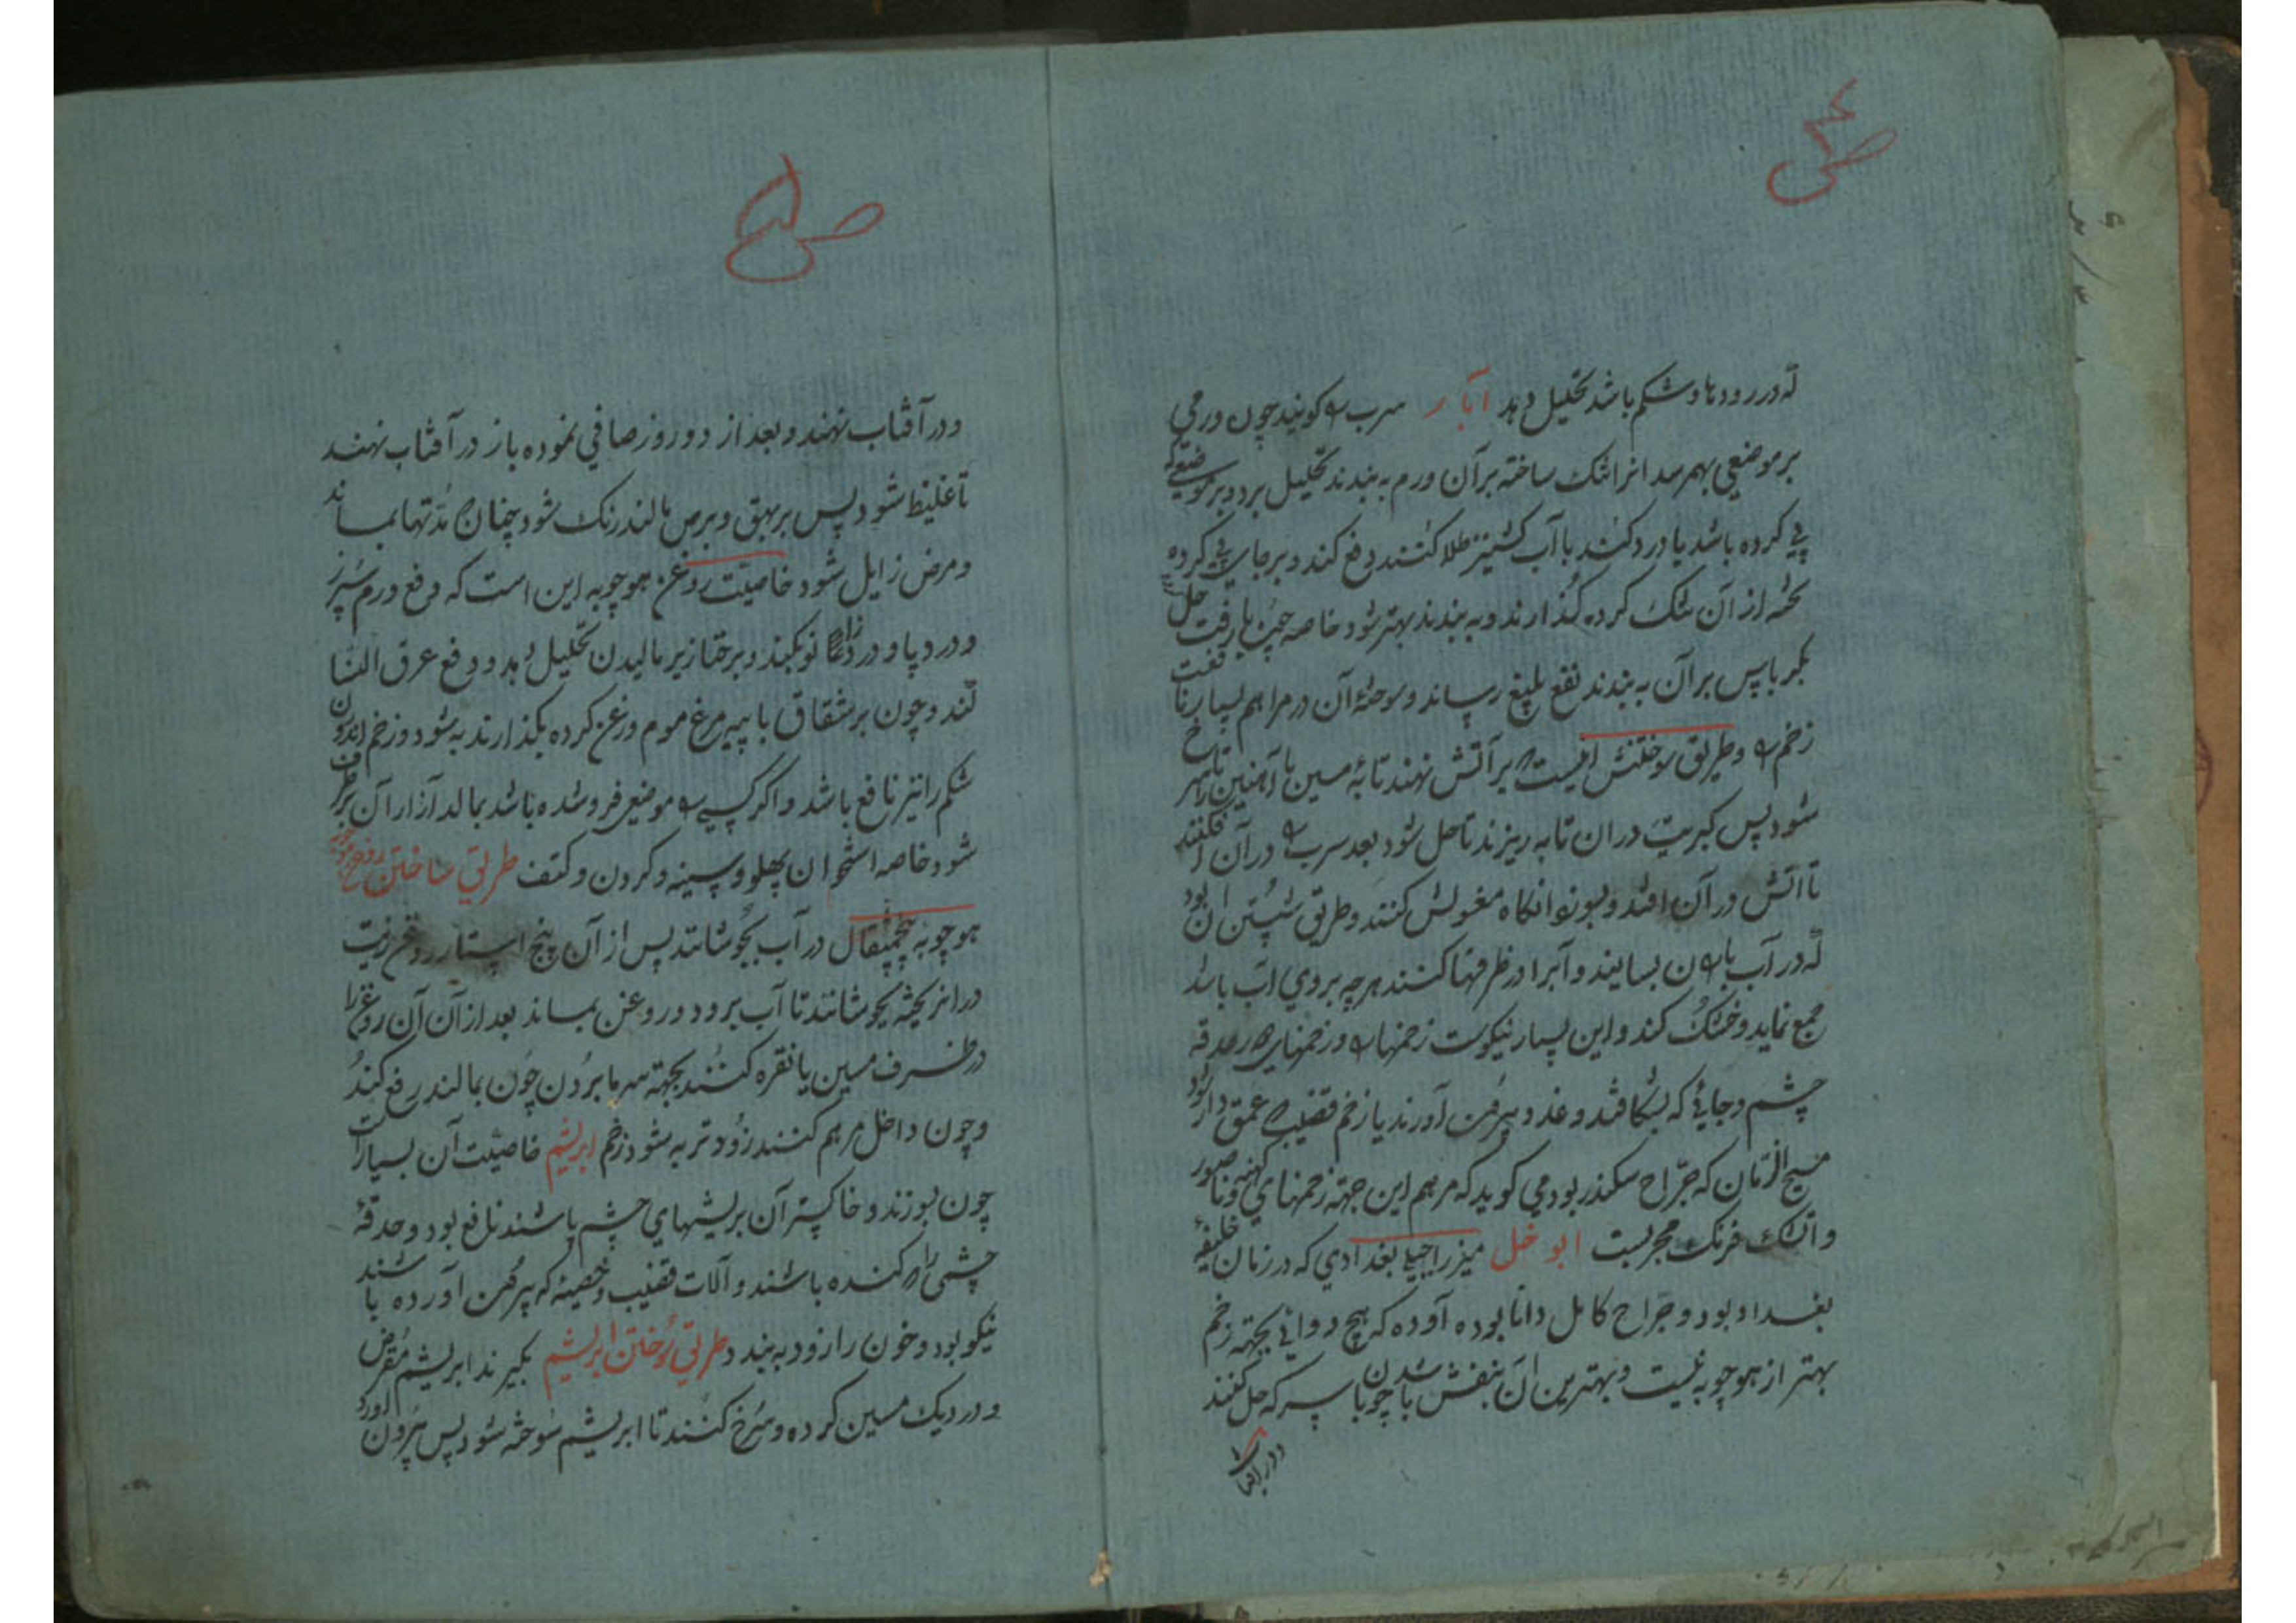 ص ۴
که در رودها و شکم باشد تحلیل دهد آبار سرب را کویند چون ورمی
بر موضعی بهم رسد انرا تنک ساخته بر آن ورم به بندند تحلیل برد و بر موضعیکه
پی کرده باشد یا درد کند با آب کشنیز طلا کنند دفع کند و بر جای پی کرده
تخته از آن تنک کرده کذارند و به بندند بهتر شود خاصه چون با رفت حل
بکرباس بر آن به بندند نفع بلیغ رساند و سوخته آن در مراهم بسیار نافعست
زخم را و طریق سوختنش اینست که بر آتش نهند تابه مسین یا آهنین تا سرخ
شود پس کبریت در ان تابه ریزند تا حل شود بعد سرب را در آن افکنند
تا اتش در آن افتد و بسوزد انکاه مغسولش کنند و طریق شستن آن بود
که در آب باران بسایند و آبرا در ظرفها کنند هر چه بر روی آب باشد
جمع نماید و خشک کند و این بسیار نیکوست زخمها را و زخمهای که در حدقه
چشم و جائی که بشکافند و غدد بیرون آورند یا زخم قضیب که عمق دار شود
مسیح الزمان که جراح سکندر بود می کوید که مرهم این جهته زخمهای کهنه و ناصور
و آتشک فرنک مجربست ابو خل میزرا بغدادی که در زمان خلیفه
بغداد بود و جراح کامل دانا بوده آورده که هیچ دوائی بجهته زخم
بهتر از هوچوبه نیست و بهترین آن بنفش باشد چون با سرکه حل کنند
ودر افتاب
ص ۵
ودر آفتاب نهند و بعد از دو روز صافی نموده باز در آفتاب نهند
تا غلیظ شود پس بر بهق و برص مالند رنک شود چنان که مدتها بماند
و مرض زایل شود خاصیت روغن هوچوبه این است که دفع ورم سپرز
و درد پا و درد زانو بکند و بر خنازیر مالیدن تحلیل دهد و دفع عرق النسا
کند و چون بر شقاق با پیه مرغ موم روغن کرده بکذارند به شود و زخم اندرون
شکم را نیز نافع باشد و اکر کسی را موضعی فرو شده باشد بمالد آزار آن برطرف
شود خاصه استخوان پهلو و سینه و کردن و کتف طریق ساختن روغن هوچوبه
هوچوبه پنجمثقال در آب بجوشانند پس از آن پنج استار روغن زیت
در انریخته بجوشانند تا آب برود و روغن بماند بعد از آن آن روغن را
در ظرف مسین یا نقره کنند بجهته سرما بردن چون بمالند رفع کند
و چون داخل مرهم کنند زودتر به شود زخم ابریشم خاصیت آن بسیار است
چون بسوزند و خاکستر آن بریشهای چشم پاشند نافع بود و حدقهٔ
چشمی را که کنده باشند و آلات قضیب و خصیه که بیرون آورده باشند
نیکو بود و خون را زود به بندد طریق سوختن ابریشم بکیرند ابریشم مقرض
و در دیک مسین کرده و سرخ کنند تا ابریشم سوخته شود پس بیرون آورد